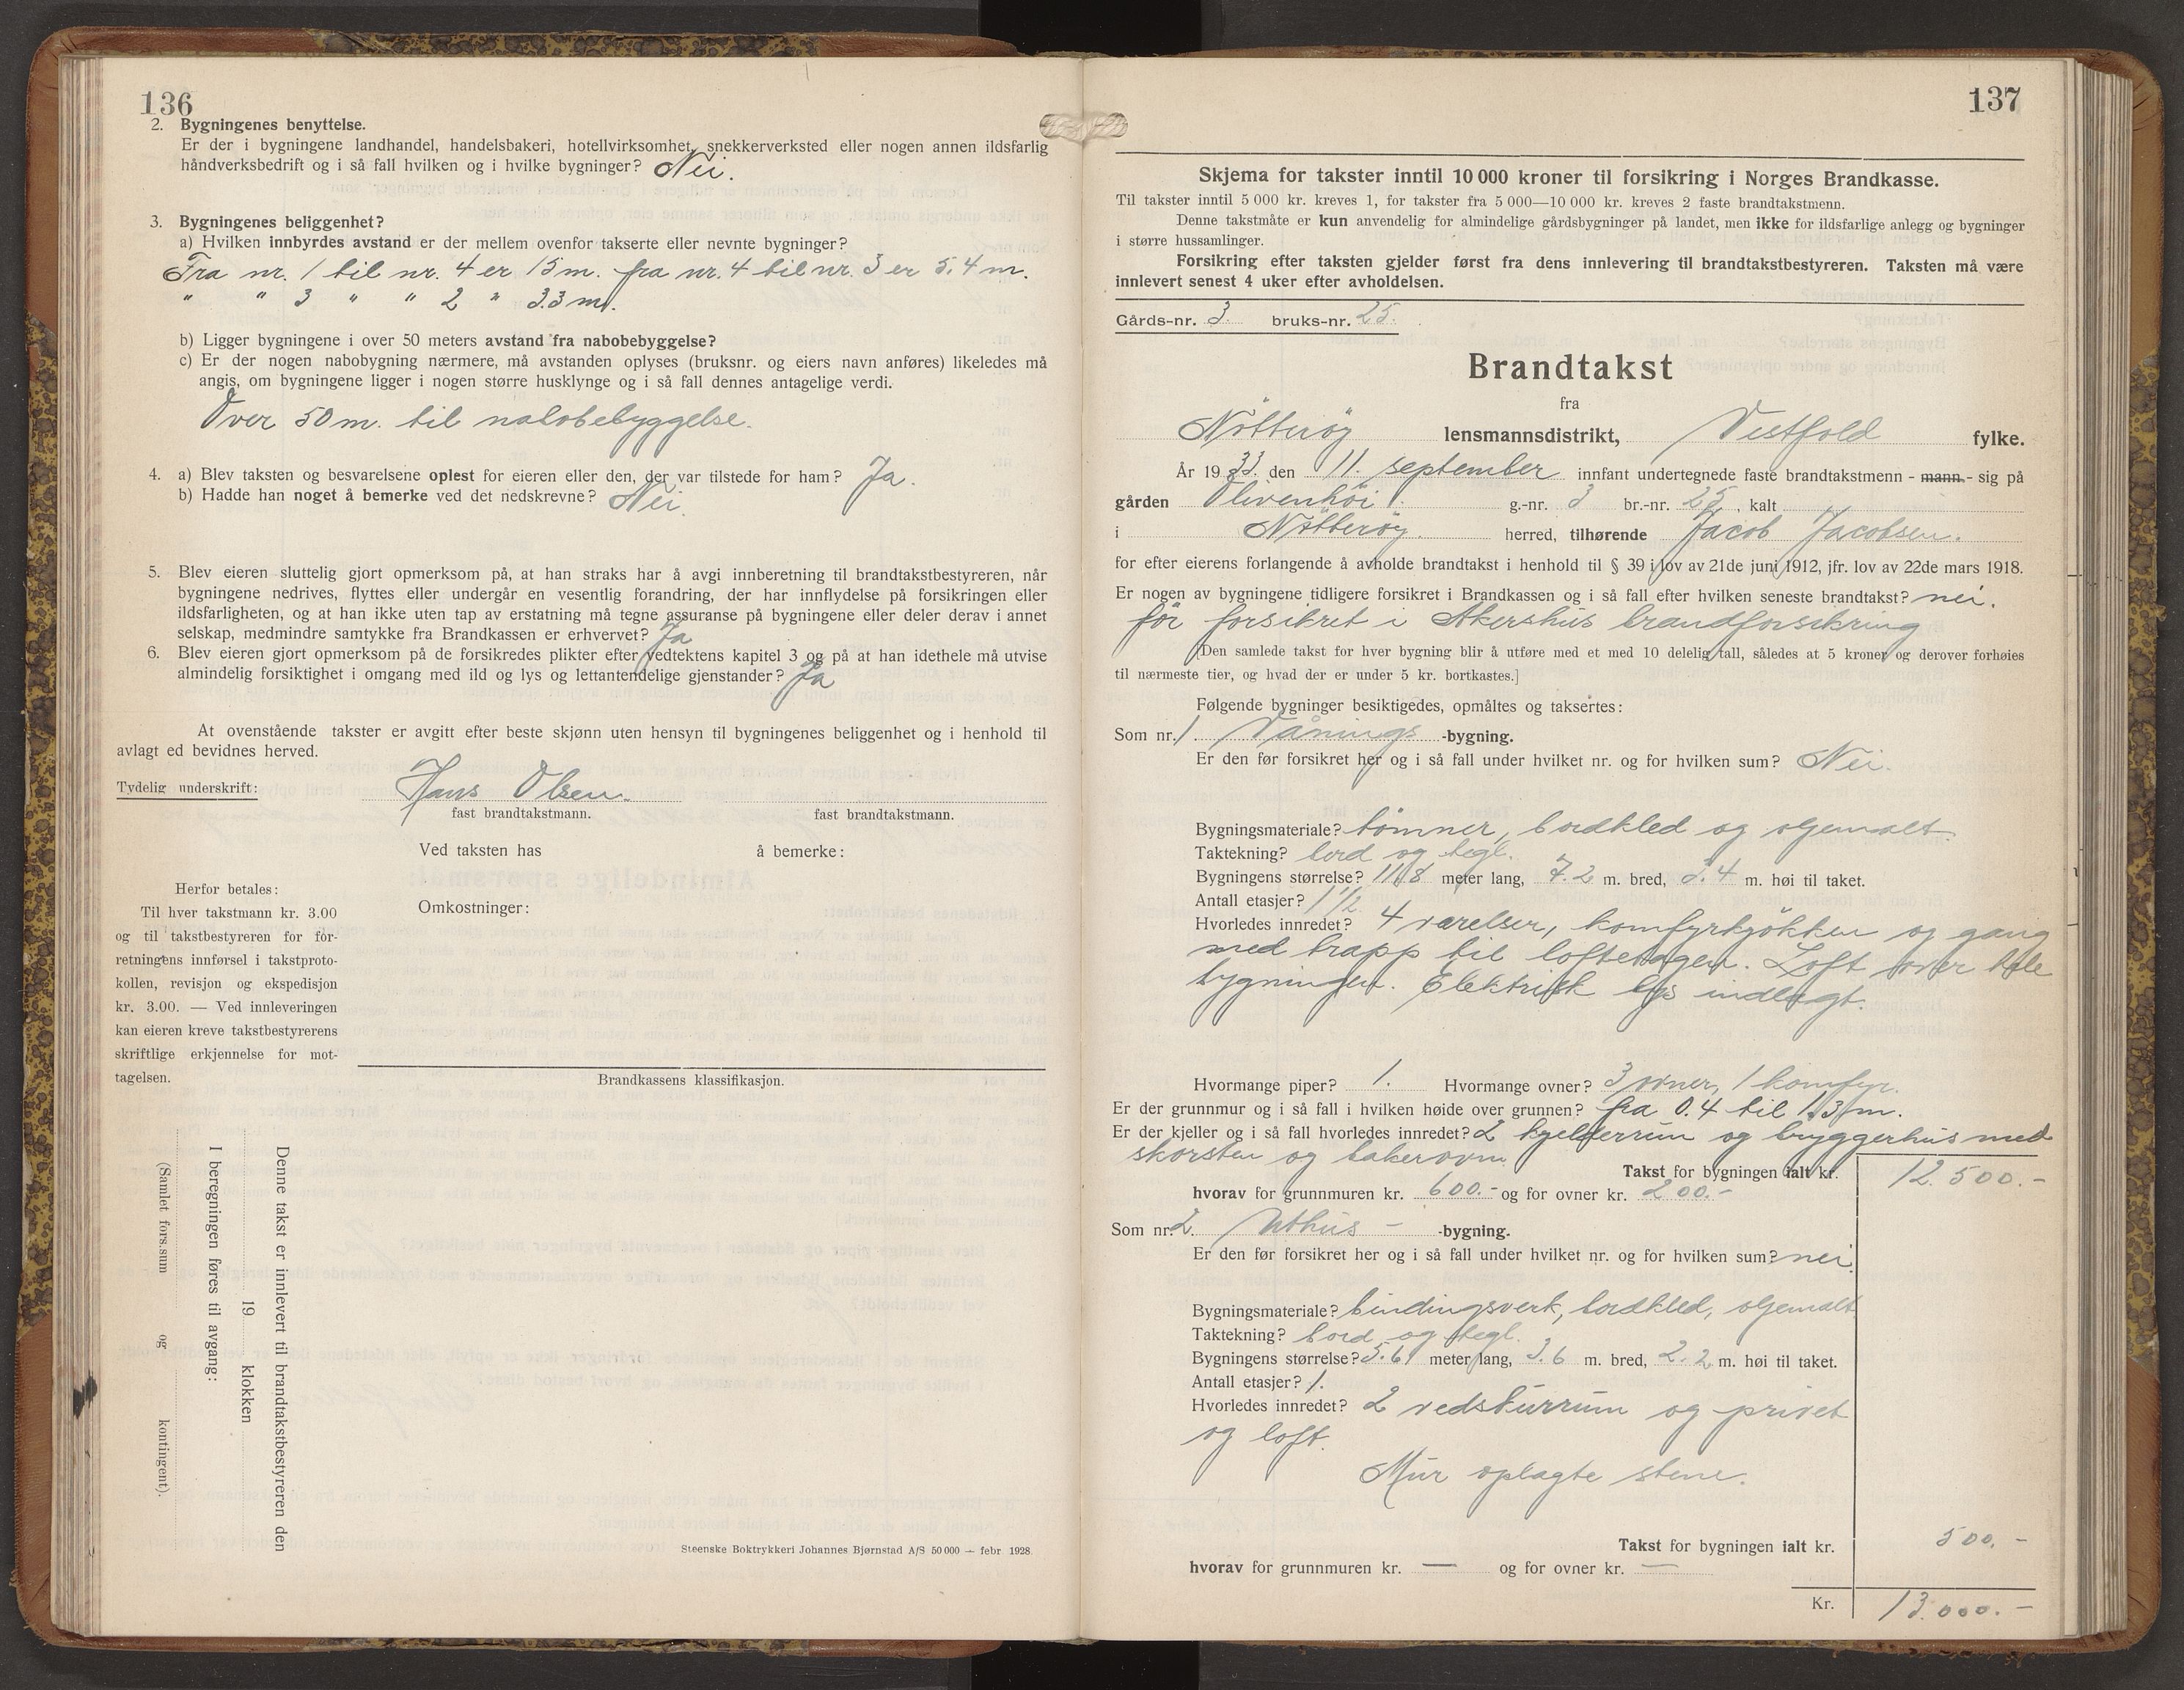 136
2. Bygningenes benyttelse.
Er der i bygningene landhandel, handelsbakeri, hotellvirksomhet, snekkerverksted eller nogen annen ildsfarlig
håndverksbedrift og i så fall hvilken og i hvilke bygninger? Nei.
3. Bygningenes beliggenhet?
a) Hvilken innbyrdes avstand er der mellem ovenfor takserte eller nevnte bygninger?
Fra nr. 1 til nr. 4 er 15 m. fra nr. 4 til nr. 3 er 5.4 m.
" " 3 " " 2 " 3.3 m.
b) Ligger bygningene i over 50 meters avstand fra nabobebyggelse?
c) Er der nogen nabobygning nærmere, må avstanden oplyses (bruksnr. og eiers navn anføres) likeledes må
angis, om bygningene ligger i nogen større husklynge og i så fall dennes antagelige verdi.
Over 50 m. til nabobebyggelse.
4. a) Blev taksten og besvarelsene oplest for eieren eller den, der var tilstede for ham? Ja.
b) Hadde han noget å bemerke ved det nedskrevne? Nei.
5. Blev eieren sluttelig gjort opmerksom på, at han straks har å avgi innberetning til brandtakstbestyreren, når
bygningene nedrives, flyttes eller undergår en vesentlig forandring, der har innflydelse på forsikringen eller
ildsfarligheten, og at han ikke uten tap av erstatning må tegne assuranse på bygningene eller deler derav i annet
selskap, medmindre samtykke fra Brandkassen er erhvervet? Ja
6. Blev eieren gjort opmerksom på de forsikredes plikter efter vedtektens kapitel 3 og på at han idethele må utvise
almindelig forsiktighet i omgang med ild og lys og lettantendelige gjenstander? Ja
At ovenstående takster er avgitt efter beste skjønn uten hensyn til bygningenes beliggenhet og i henhold til
avlagt ed bevidnes herved.
Tydelig underskrift: Hans Olsen.
fast brandtakstmann. fast brandtakstmann.
Ved taksten has å bemerke:
Omkostninger:
Herfor betales:
Til hver takstmann kr. 3.00
og til takstbestyreren for for-
retningens innførsel i takstproto-
kollen, revisjon og ekspedisjon
kr. 3.00. — Ved innleveringen
kan eieren kreve takstbestyrerens
skriftlige erkjennelse for mot-
tagelsen.
Brandkassens klassifikasjon.
Denne takst er innlevert til brandtakstbestyreren den
19 klokken
I beregningen føres til avgang:
(Samlet fors.sum og kontingent).
Steenske Boktrykkeri Johannes Bjørnstad A/S 50 000 — febr. 1928.
137
Skjema for takster inntil 10 000 kroner til forsikring i Norges Brandkasse.
Til takster inntil 5 000 kr. kreves 1, for takster fra 5 000—10 000 kr. kreves 2 faste brandtakstmenn.
Denne takstmåte er kun anvendelig for almindelige gårdsbygninger på landet, men ikke for ildsfarlige anlegg og bygninger
i større hussamlinger.
Forsikring efter taksten gjelder først fra dens innlevering til brandtakstbestyreren. Taksten må være
innlevert senest 4 uker efter avholdelsen.
Gårds-nr. 3. bruks-nr. 25.
Brandtakst
fra
Nötteröy lensmannsdistrikt, Vestfold fylke.
År 1933 den 11. september innfant undertegnede faste brandtakstmenn - mann - sig på
gården Olivenhöi. g.-nr. 3 br.-nr. 25, kalt
i Nötteröy. herred, tilhørende Jacob Jacobsen.
for efter eierens forlangende å avholde brandtakst i henhold til § 39 i lov av 21de juni 1912, jfr. lov av 22de mars 1918.
Er nogen av bygningene tidligere forsikret i Brandkassen og i så fall efter hvilken seneste brandtakst? nei.
för forsikret i Akershus brandforsikring
[Den samlede takst for hver bygning blir å utføre med et med 10 delelig tall, således at 5 kroner og derover forhøies
til nærmeste tier, og hvad der er under 5 kr. bortkastes.]
Følgende bygninger besiktigedes, opmåltes og taksertes:
Som nr. 1. Vånings -bygning.
Er den før forsikret her og i så fall under hvilket nr. og for hvilken sum? Nei.
Bygningsmateriale? tömmer, bordkled og oljemalt.
Taktekning? bord og tegl.
Bygningens størrelse? 11.8 meter lang, 7.2 m. bred, 3.4 m. høi til taket.
Antall etasjer? 1 1/2.
Hvorledes innredet? 4 værelser, komfyrkjökken og gang
med trapp til loftetagen. Loft over hele
bygningen. Elektrisk lys indlagt.
Hvormange piper? 1. Hvormange ovner? 3 ovner, 1 komfyr.
Er der grunnmur og i så fall i hvilken høide over grunnen? fra 0.4 til 1.3 m.
Er der kjeller og i så fall hvorledes innredet? 2 kjellerrum og bryggerhus med
skorsten og bakerovn
Takst for bygningen ialt kr. 12.500.-
hvorav for grunnmuren kr. 600.- og for ovner kr. 200.-
Som nr. 2. Uthus - -bygning.
Er den før forsikret her og i så fall under hvilket nr. og for hvilken sum? nei.
Bygningsmateriale? bindingsverk, bordkled, oljemalt
Taktekning? bord og tegl.
Bygningens størrelse? 5.6 meter lang, 3.6 m. bred, 2.2 m. høi til taket.
Antall etasjer? 1.
Hvorledes innredet? 2 vedskurrum og privet
og loft.
Mur oplagte stene.
Takst for bygningen ialt kr. 500.-
hvorav for grunnmuren kr. — og for ovner kr. —
Kr. 13.000.-